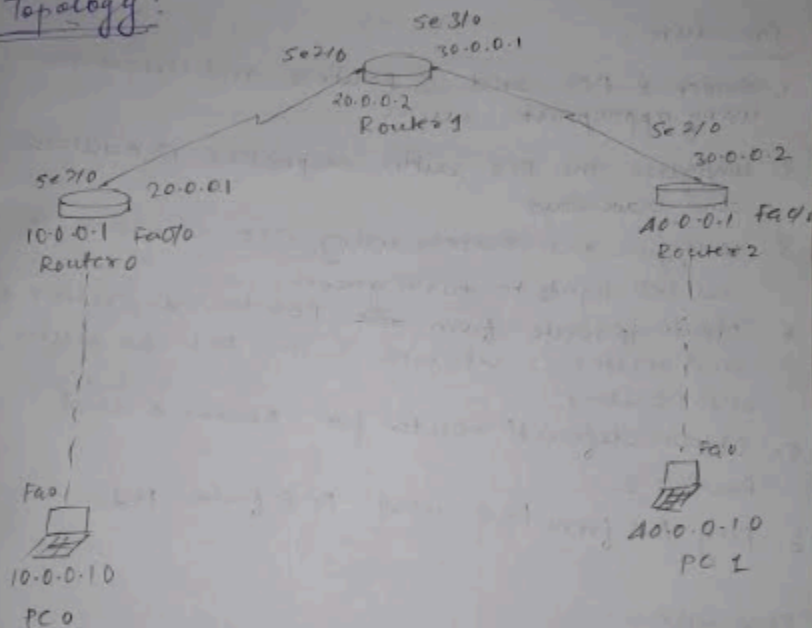 Topology:
Se 3/0
Se2/0
30.0.0.1
20.0.0.2
Router 1
Se 2/0
30.0.0.2
Se2/0
20.0.0.1
10.0.0.1 Fa0/0
Router 0
40.0.0.1 Fa0/0
Router 2
Fa0
10.0.0.10
PC 0
Fa0
40.0.0.10
PC 1